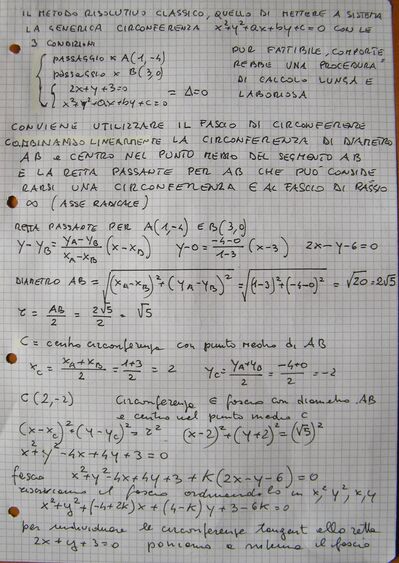 IL METODO RISOLUTIVO CLASSICO, QUELLO DI METTERE A SISTEMA
LA GENERICA CIRCONFERENZA x²+y²+ax+by+c=0 CON LE
3 CONDIZIONI
PASSAGGIO x A(1,-4)
passaggio x B(3,0)
{2x+y+3=0
x²+y²+ax+by+c=0 = Δ=0
PUR FATTIBILE, COMPORTE
REBBE UNA PROCEDURA
DI CALCOLO LUNGA E
LABORIOSA
CONVIENE UTILIZZARE IL FASCIO DI CIRCONFERENZE
COMBINANDO LINEARMENTE LA CIRCONFERENZA DI DIAMETRO
AB e CENTRO NEL PUNTO MEDIO DEL SEGMENTO AB
E LA RETTA PASSANTE PER AB CHE PUO' CONSIDE
RARSI UNA CIRCONFERENZA E AL FASCIO DI RAGGIO
∞ (ASSE RADICALE)
RETTA PASSANTE PER A(1,-4) E B(3,0)
y-y_B = (y_A-y_B)/(x_A-x_B) (x-x_B) y-0 = (-4-0)/(1-3) (x-3) 2x-y-6=0
DIAMETRO AB = √((x_A-x_B)²+(y_A-y_B)²) = √((1-3)²+(-4-0)²) = √20 = 2√5
r = AB/2 = 2√5/2 = √5
C = centro circonferenza con punto medio di AB
x_C = (x_A+x_B)/2 = (1+3)/2 = 2 y_C = (y_A+y_B)/2 = (-4+0)/2 = -2
C(2,-2) Circonferenza ∈ fascio con diametro AB
e centro nel punto medio C
(x-x_C)²+(y-y_C)² = r² (x-2)²+(y+2)² = (√5)²
x²+y²-4x+4y+3=0
fascio x²+y²-4x+4y+3+K(2x-y-6)=0
il fascio ordinandolo in x²,y²,x,y
x²+y²+(-4+2k)x+(4-k)y+3-6k=0
per individuare le circonferenze tangenti alla retta
2x+y+3=0 poniamo a sistema il fascio